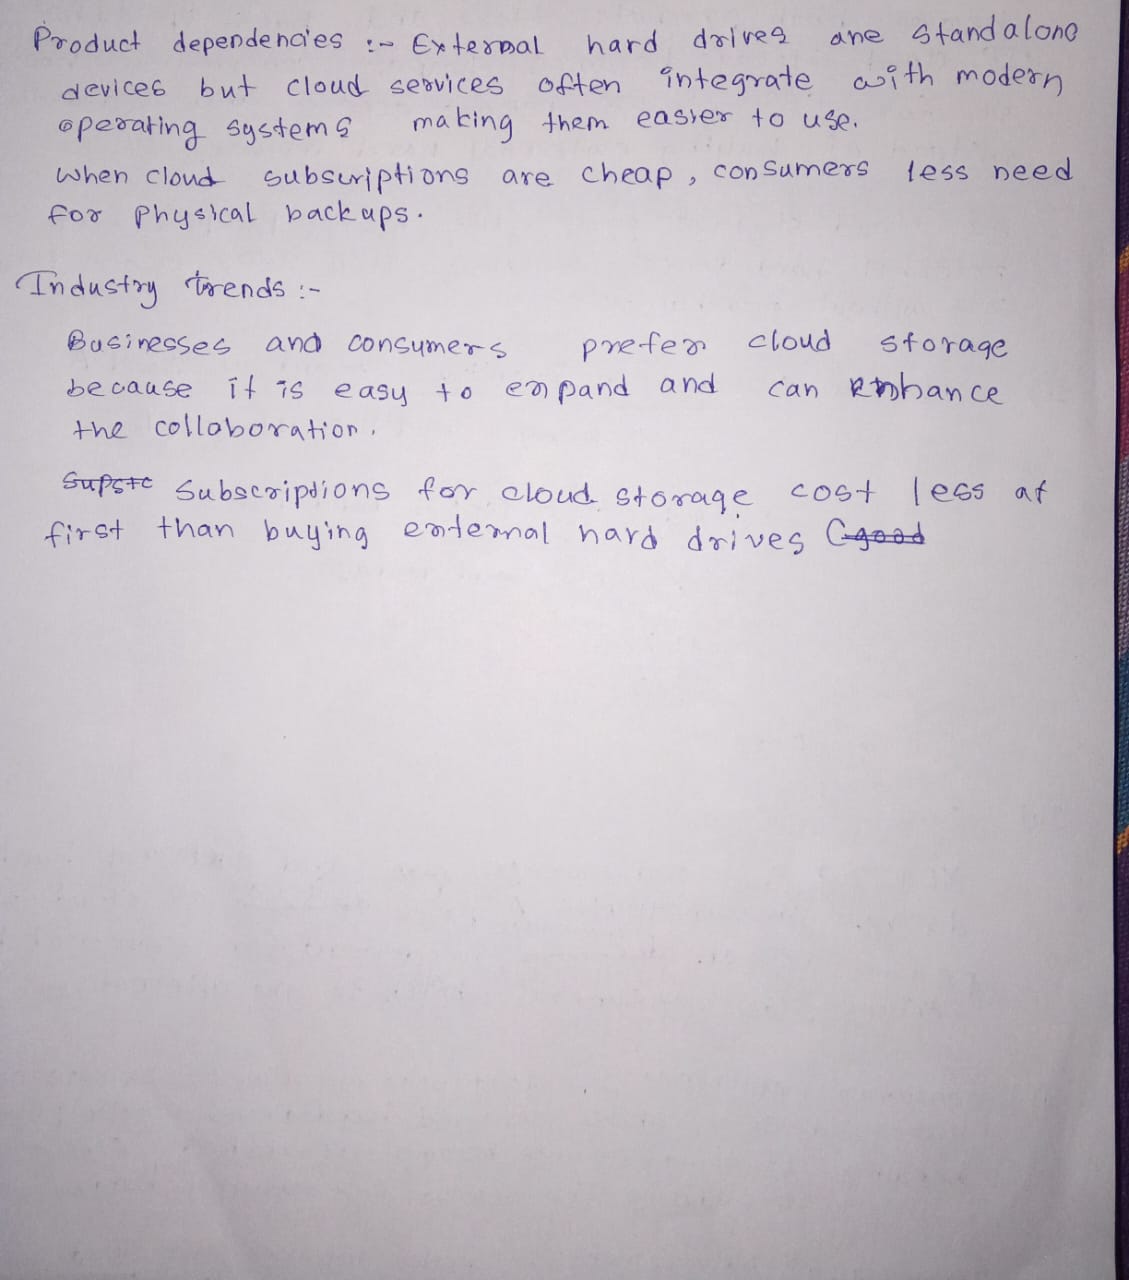 Product dependencies :- External hard drives are standalone
devices but cloud services often integrate with modern
operating systems making them easier to use.
when cloud subscriptions are cheap, consumers less need
for physical backups.
Industry trends :-
Businesses and consumers prefer cloud storage
because it is easy to expand and can enhance
the collaboration.
Supstc Subscriptions for cloud storage cost less at
first than buying external hard drives (good